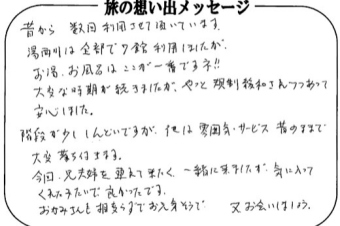 旅の想い出メッセージ
昔から 数回利用させて頂いています。
湯西川は全部で9館利用しましたが、
お湯、お風呂はここが一番ですネ!!
大変な時期が続きましたが、やっと規制緩和さんつつあって
安心しました。
階段が少ししんどいですが、他は雰囲気・サービス 昔のままで
大変落ち付きます。
今回、兄夫婦を連えて来たく、一緒に来ましたが、気に入って
くれたみたいで良かったです。
おかみさんも相変らずでお元気そうで 又お会いしましょう。